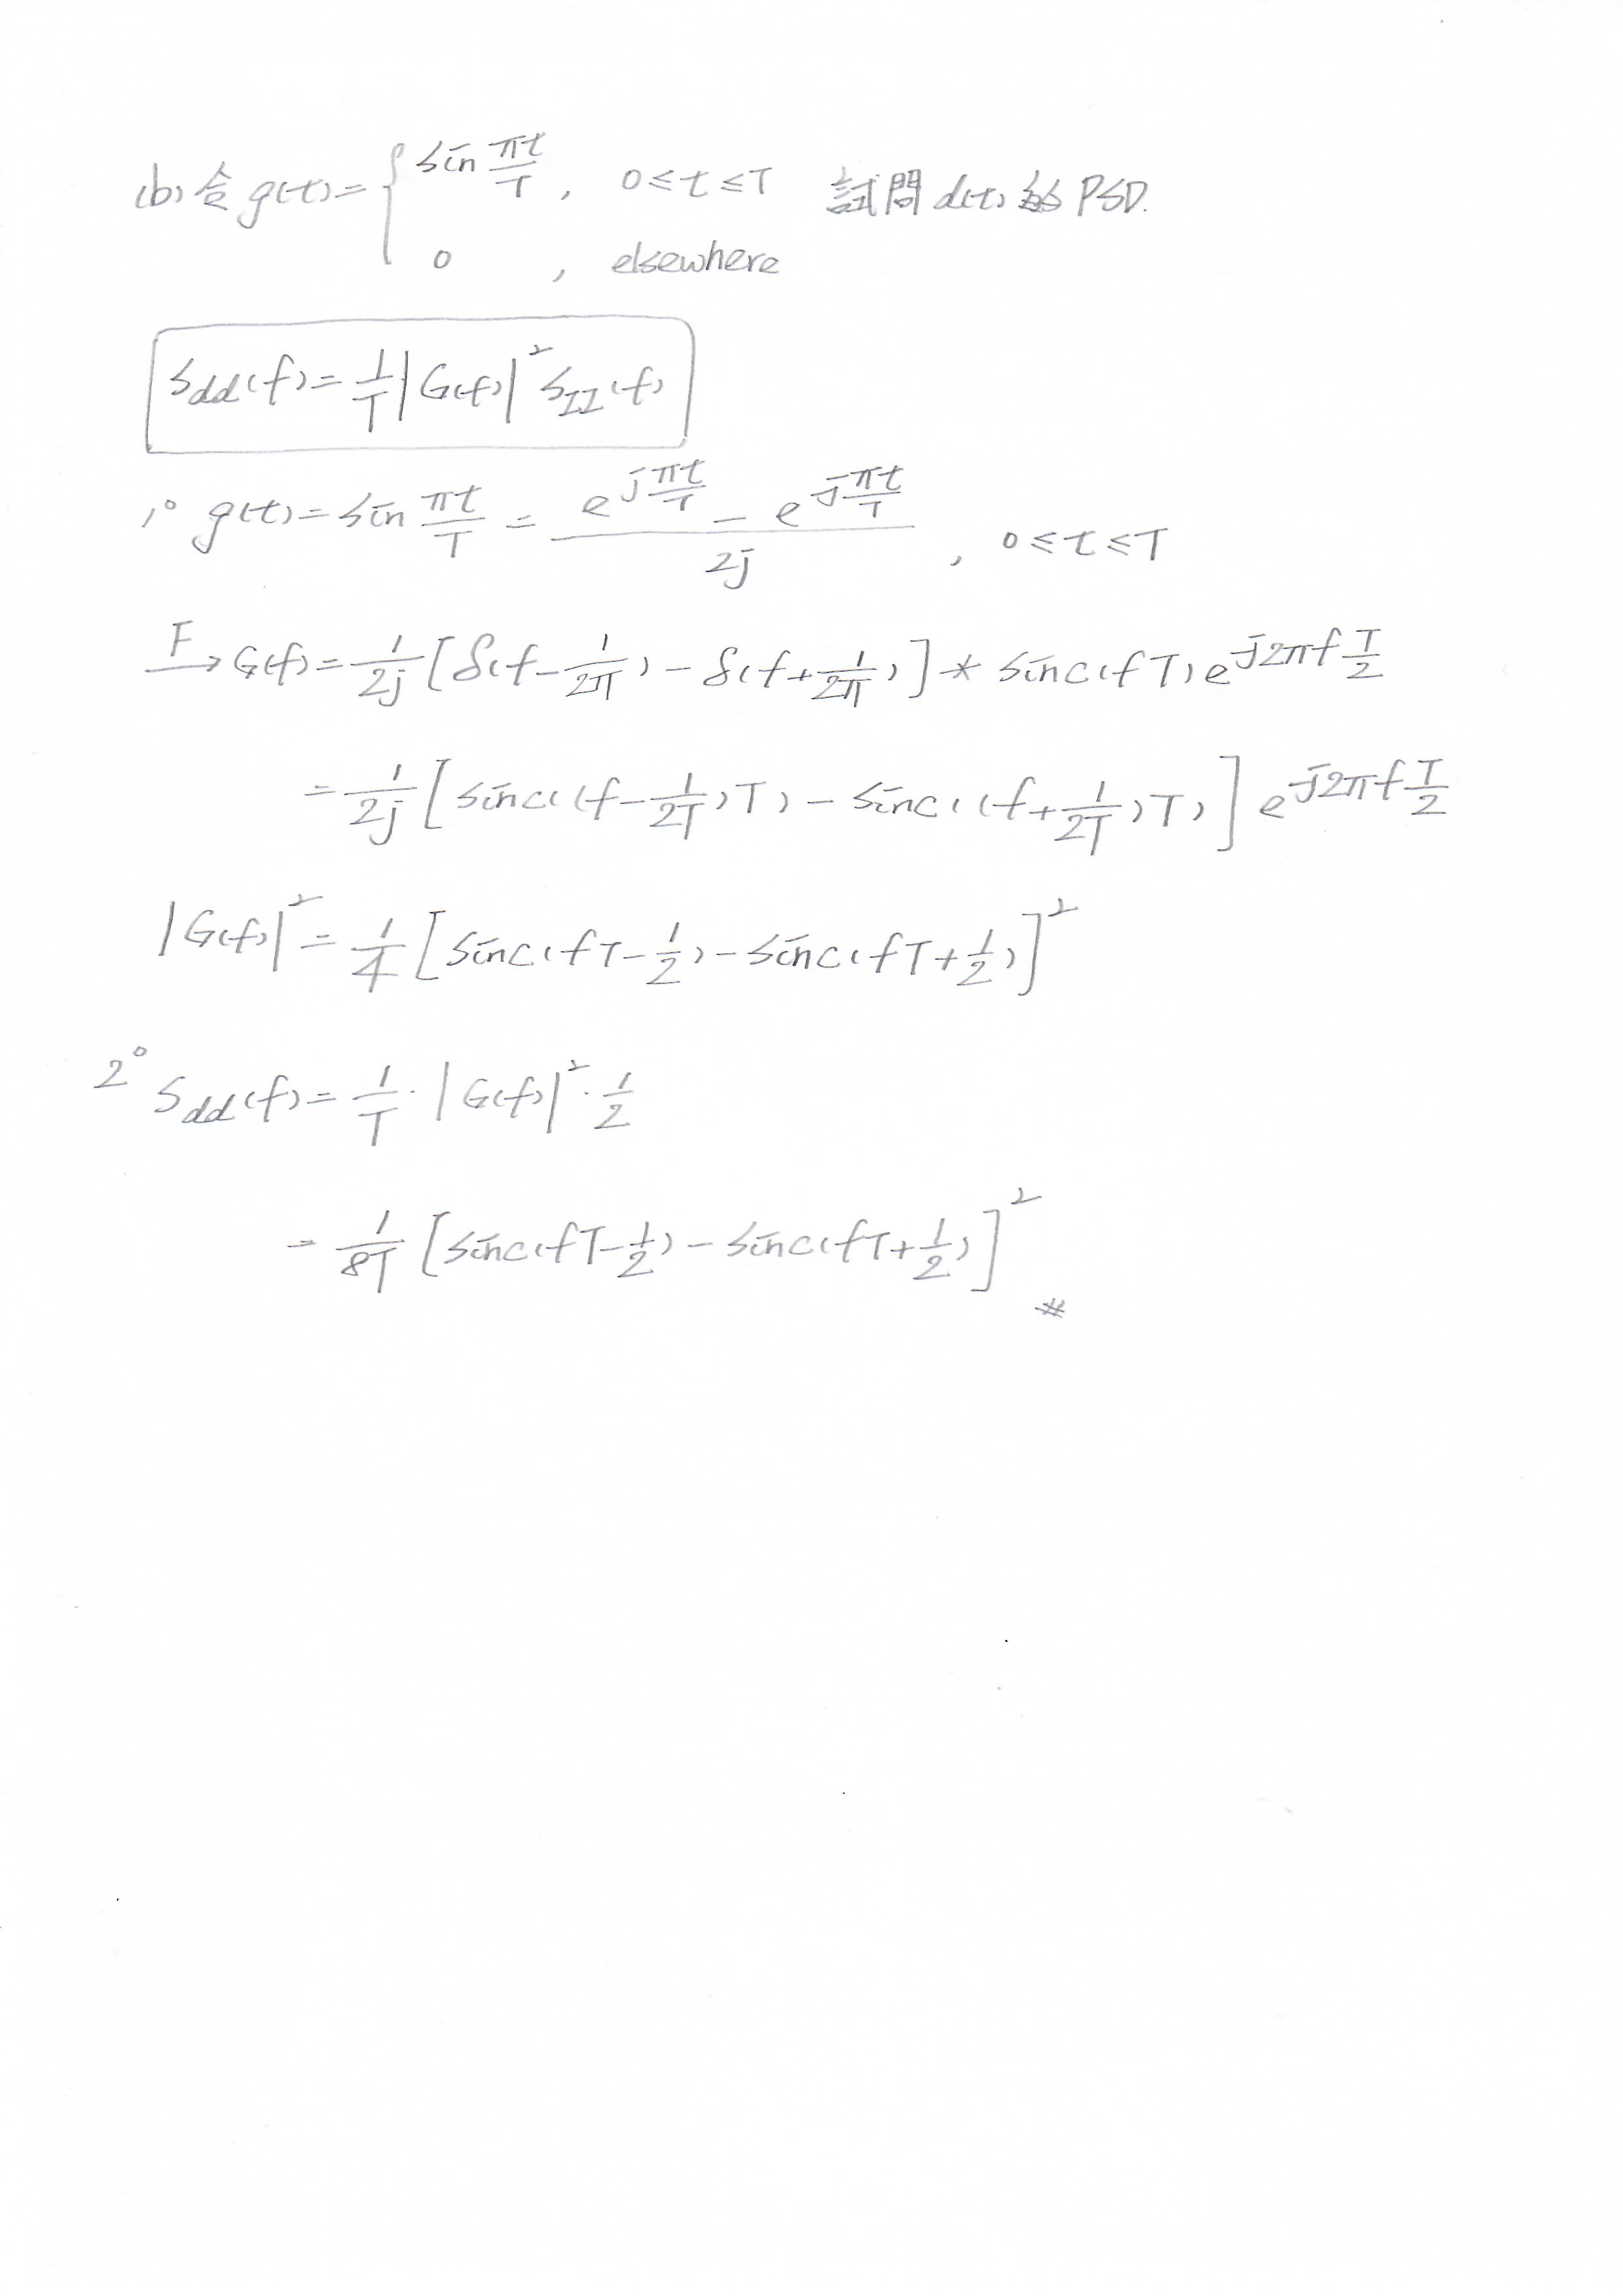 (b) 令 g(t) = { sin πt/T , 0 ≤ t ≤ T 試問 d(t) 的 PSD.
0 , elsewhere
S_dd(f) = 1/T |G(f)|² S_II(f)
1° g(t) = sin πt/T = (e^{j πt/T} − e^{-j πt/T}) / 2j , 0 ≤ t ≤ T
F→ G(f) = 1/2j [δ(f − 1/2π) − δ(f + 1/2π)] * sinc(fT) e^{-j2πf T/2}
= 1/2j [sinc((f − 1/2T)T) − sinc((f + 1/2T)T)] e^{-j2πf T/2}
|G(f)|² = 1/4 [sinc(fT − 1/2) − sinc(fT + 1/2)]²
2° S_dd(f) = 1/T · |G(f)|² · 1/2
= 1/8T [sinc(fT − 1/2) − sinc(fT + 1/2)]² #